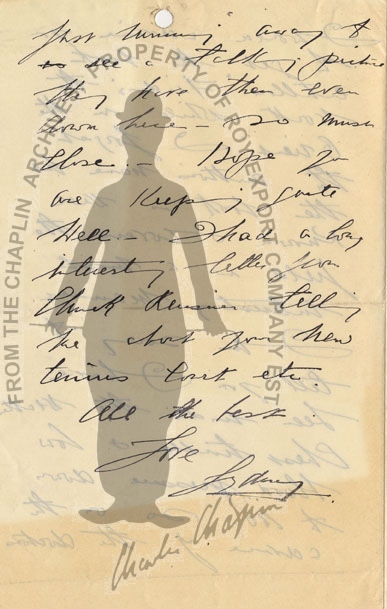 Just running away to
to see a talking picture
they have them even
down here - so must
close. - Hope you
are Keeping quite
Well. - I had a long
interesting letter from
Chuck telling
me about your new
tennis Court etc.
All the best.
Love
Sydney
FROM THE CHAPLIN ARCHIVES PROPERTY OF ROY EXPORT COMPANY EST
Charlie Chaplin